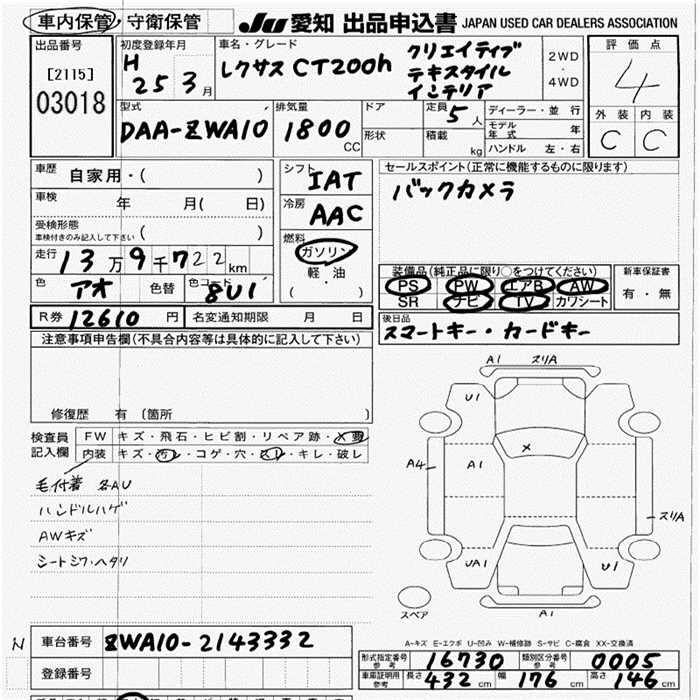 車内保管・守衛保管
JU 愛知 出品申込書 JAPAN USED CAR DEALERS ASSOCIATION
出品番号
[2115]
03018
初度登録年月
H 25 3月
車名・グレード
レクサス CT200h
クリエイティブ
テキスタイル
インテリア
2WD
・
4WD
評価点
4
外装 内装
C C
型式
DAA-ZWA10
排気量
1800 CC
ドア
形状
定員 5人
積載 kg
ディーラー・並行
モデル年式 年
ハンドル 左・右
車歴 自家用・( )
車検 年 月( 日)
受検形態
車検付きのみ記入して下さい ( )
走行 13万9千722km
色 アオ 色替 色コード 8U1
R券 12610円 名変通知期限 月 日
シフト IAT
冷房 AAC
燃料
ガソリン
軽・油
( )
セールスポイント(正常に機能するものに限ります)
バックカメラ
装備品(純正品に限り○をつけてください)
PS PW エアB AW
SR ナビ TV カワシート
新車保証書
有・無
後日品
スマートキー・カードキー
注意事項申告欄(不具合内容等は具体的に記入して下さい)
修復歴 有 〔箇所 〕
検査員記入欄
FW キズ・飛石・ヒビ割・リペア跡・X要
内装 キズ・汚レ・コゲ・穴・スレ・キレ・破レ
毛付着 各AU
ハンドルハゲ
AWキズ
シートシワ・ヘタリ
A1 スリA
U1
A4 A1 X
スリA
UA1 U1
スペア
A1
A-キズ E-エクボ U-凹み W-補修跡 S-サビ C-腐食 XX-交換済
N 車台番号 ZWA10-2143332
登録番号
形式指定番号 参考 16730 類別区分番号 参考 0005
車庫証明用 参考 長さ 432cm 幅 176cm 高さ 146cm